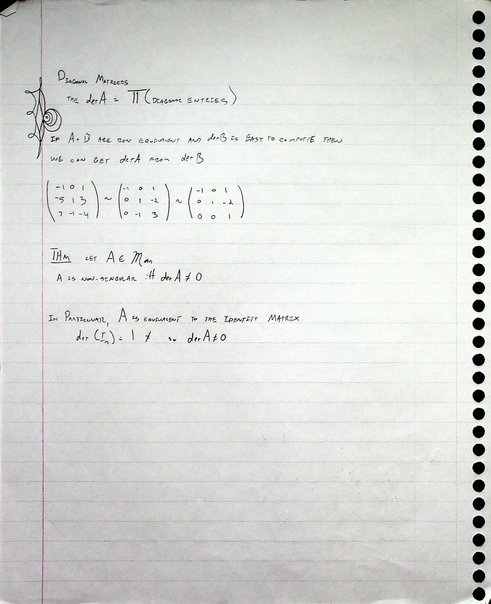 Diagonal Matrices
the det A = Π (diagonal entries)
If A + B are row equivalent and det B is easy to compute then
we can get det A from det B
(-1 0 1) ~ (-1 0 1) ~ (-1 0 1)
(-5 1 3) (0 1 -2) (0 1 -2)
(3 -1 -4) (0 -1 3) (0 0 1)
Thm let A ∈ Mnn
A is non-singular iff det A ≠ 0
In Particular, A is equivalent to the Identity Matrix
det (In) = 1 ≠ so det A ≠ 0